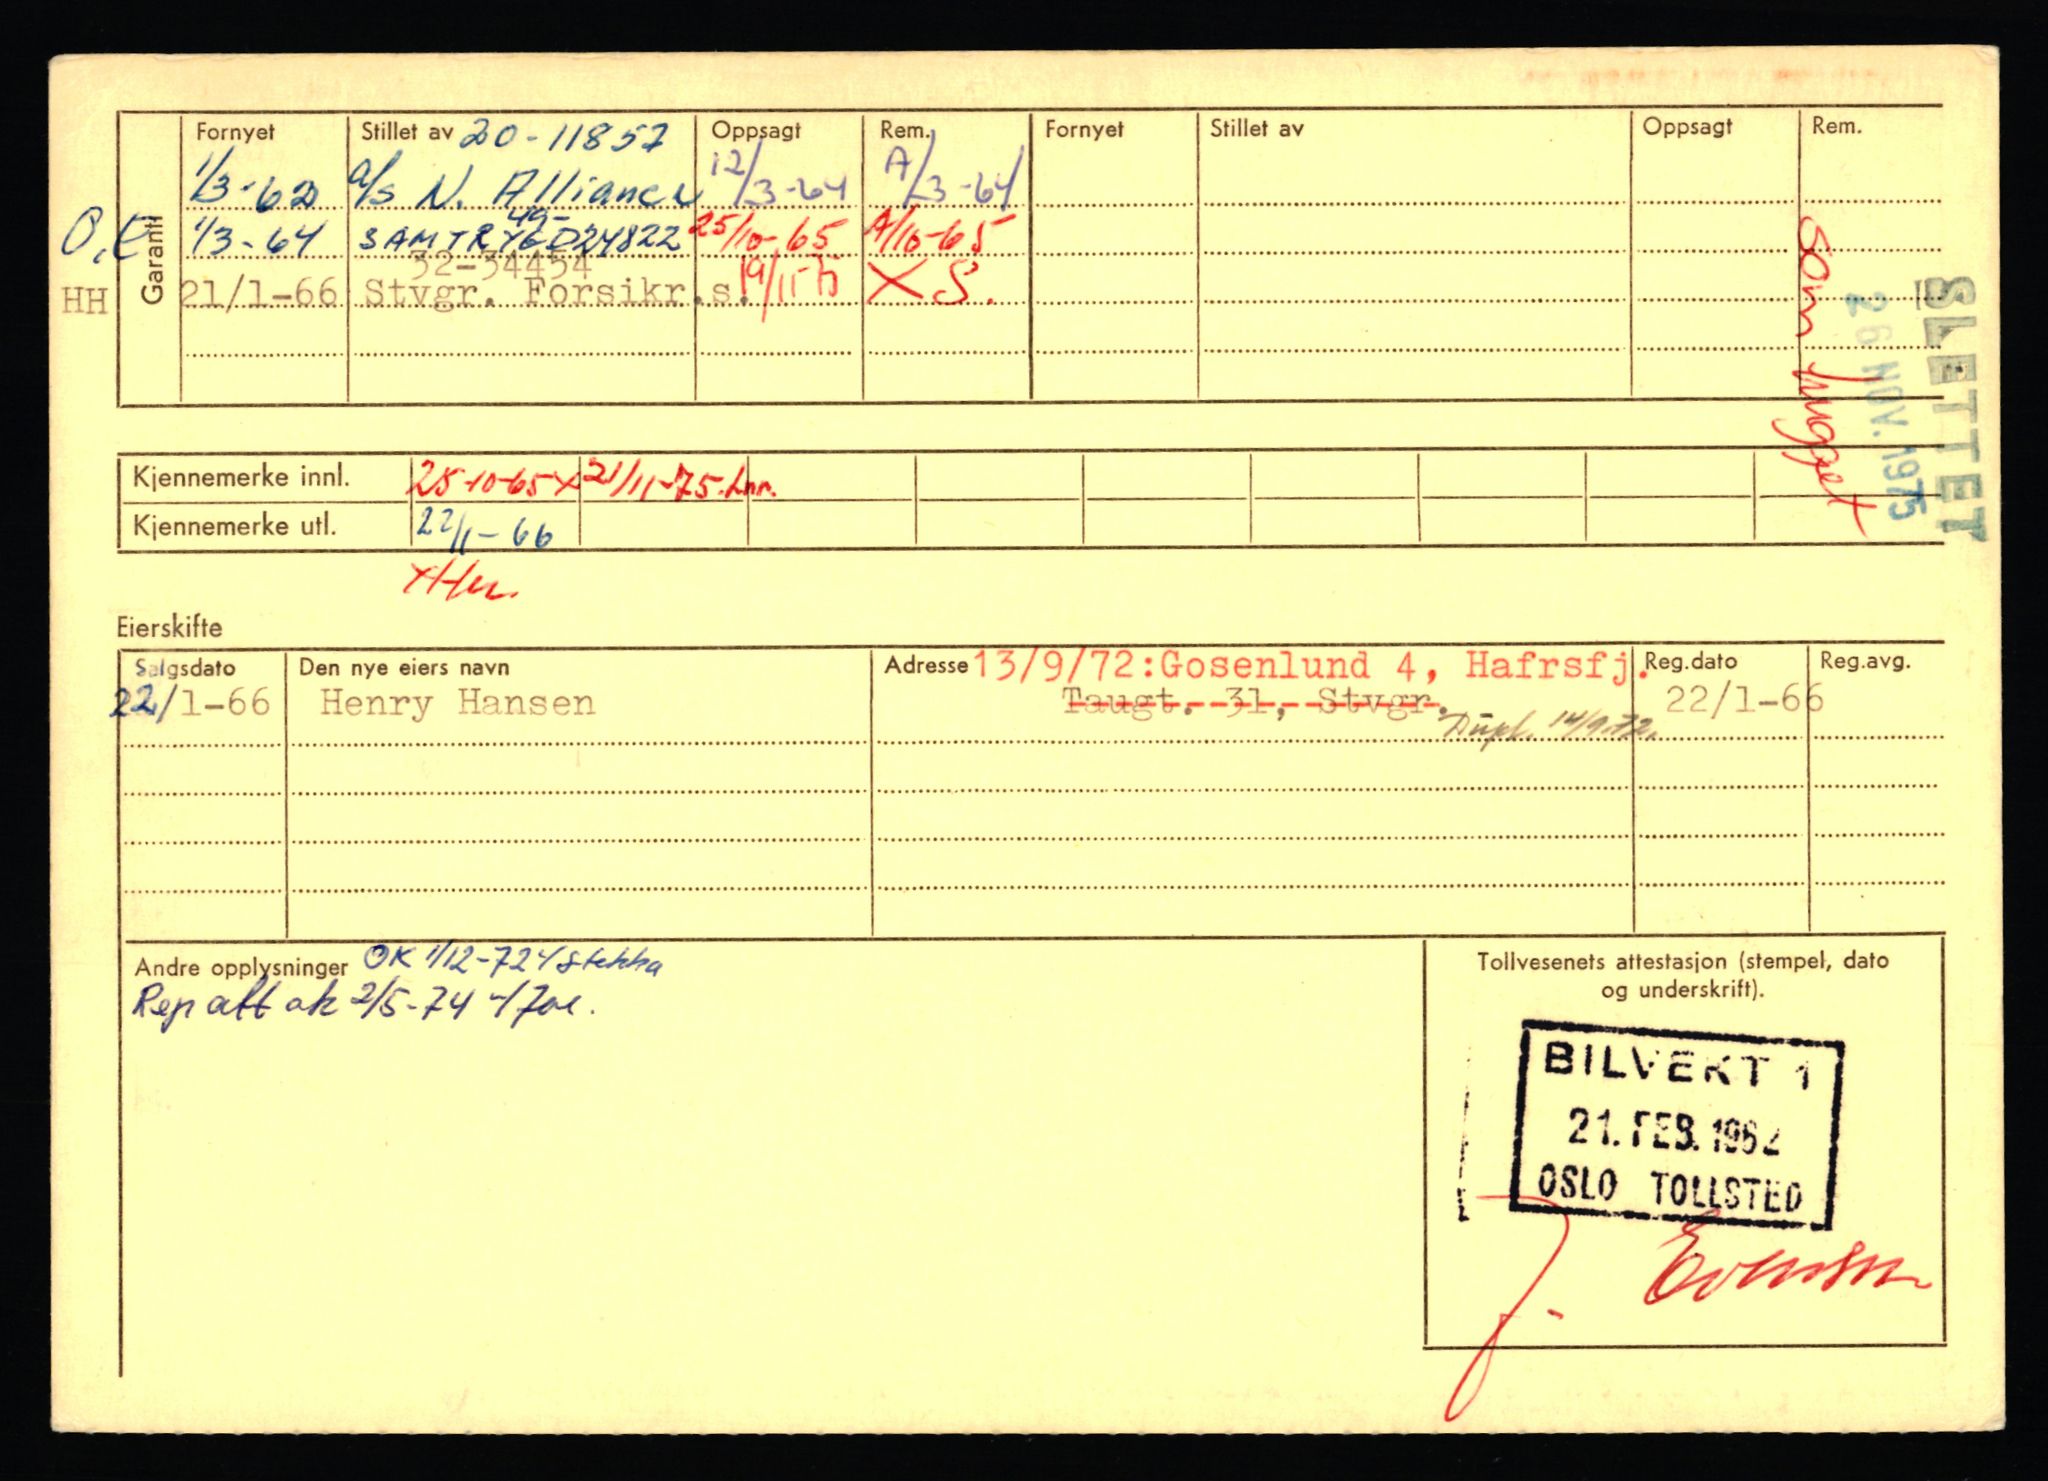 Fornyet Stillet av 20-11857 Oppsagt Rem. Fornyet Stillet av Oppsagt Rem.
1/3-62 a/s N. Alliance 12/3-64 A/3-64
O.E 1/3-64 SAMTRYGD 49-24822 25/10-65 A/10-65
32-34454
HH 21/1-66 Stvgr. Forsikr.s. 19/11 75 X S.
Garanti
som hugget
SLETTET
26 NOV. 1975
Kjennemerke innl. 25-10-65 x 21/11-75.
Kjennemerke utl. 22/1-66
Eierskifte
Salgsdato Den nye eiers navn Adresse 13/9/72:Gosenlund 4, Hafrsfj. Reg.dato Reg.avg.
22/1-66 Henry Hansen Taugt. 31, Stvgr. 22/1-66
Dupl. 14/9.72.
Andre opplysninger OK 1/12-72
Rep att ok 2/5-74
Tollvesenets attestasjon (stempel, dato
og underskrift).
BILVEKT 1
21. FEB. 1962
OSLO TOLLSTED
J. Evensen